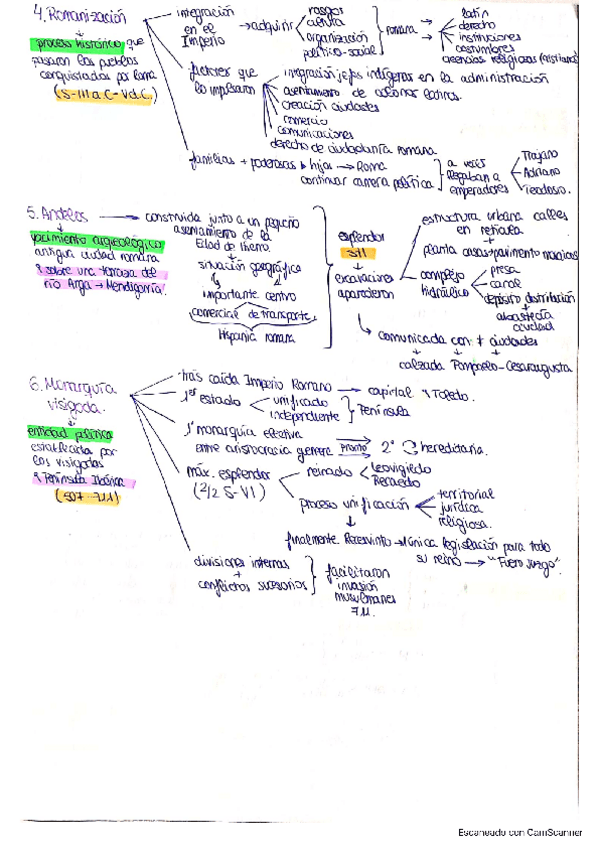 4. Romanización
proceso histórico que
pasaron los pueblos
conquistados por Roma
(S-III a.C - V d.C.)
integración
en el
Imperio
→ adquirir
rasgos
cultura
organización
político-social
romana →
→
latín
derecho
instituciones
costumbres
creencias religiosas (cristiana)
factores que
lo impulsaron
integración jefes indígenas en la administración
asentamiento de colonos latinos.
creación ciudades
comercio
comunicaciones
derecho de ciudadanía romana
familias + poderosas → hijos → Roma
continuar carrera política
a veces
llegaban a
emperadores
Trajano
Adriano
Teodosio.
5. Andelos
yacimiento arqueológico
antigua ciudad romana
sobre una terraza del
río Arga → Mendigorría.
→ construida junto a un pequeño
asentamiento de la
Edad de Hierro
+
situación geográfica
importante centro
comercial de transporte
Hispania romana
esplendor
SII
excavaciones
aparecieron
estructura urbana calles
en retícula
+
planta casas + pavimento mosaicos
complejo
hidráulico
presa
canal
depósito distribución
↓
abastecía
ciudad
→ comunicada con + ciudades
calzada Pompaelo - Cesaraugusta
6. Monarquía
visigoda.
entidad política
establecida por
los visigodos
Península Ibérica
(507 - 711)
tras caída Imperio Romano → capital Toledo.
1er estado
unificado
independiente
Península
1º monarquía electiva
entre aristocracia guerrera
pronto
2º hereditaria.
máx. esplendor
(2/2 S-VI)
reinado
Leovigildo
Recaredo
proceso unificación
territorial
jurídica
religiosa.
↓
finalmente Recesvinto → única legislación para todo
su reino → "Fuero Juzgo".
divisiones internas
+
conflictos sucesorios
facilitaron
invasión
musulmanes
711.
Escaneado con CamScanner